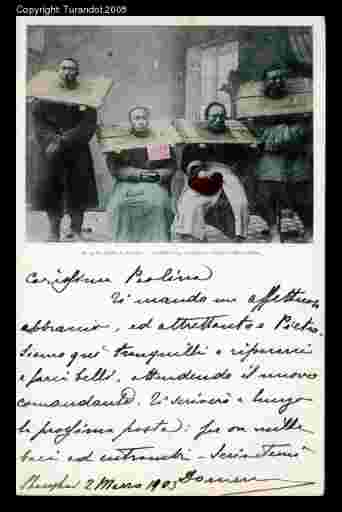 Copyright Turandot,2005
Carissima Paolina
Ti mando un affettuoso
abbraccio, ed altrettanto a Pietro.
Siamo qui tranquilli a
e farci belli, attendendo il nuovo
comandante. Ti scriverò a lungo
la prossima posta: per ora mille
baci ed entrambi
Shanghai 2 Marzo 1903